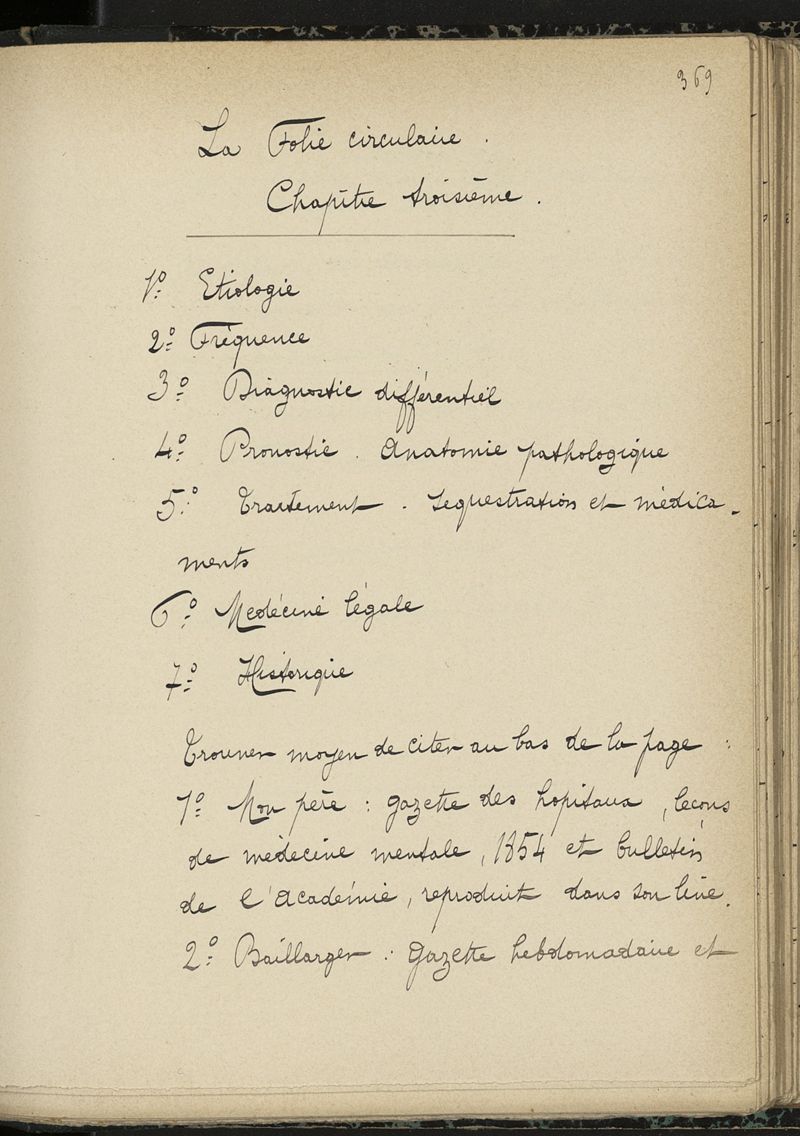 369
La Folie circulaire.
Chapitre troisième.
1º Etiologie
2º Fréquence
3º Diagnostic différentiel
4º Pronostic. Anatomie pathologique
5º Traitement. Sequestration et médica-
ments
6º Medécine légale
7º Historique
Trouver moyen de citer au bas de la page :
1º Mon père : gazette des hopitaux, leçons
de médecine mentale, 1854 et bulletin
de l'Académie, reproduit dans son livre.
2º Baillarger : Gazette hebdomadaire et